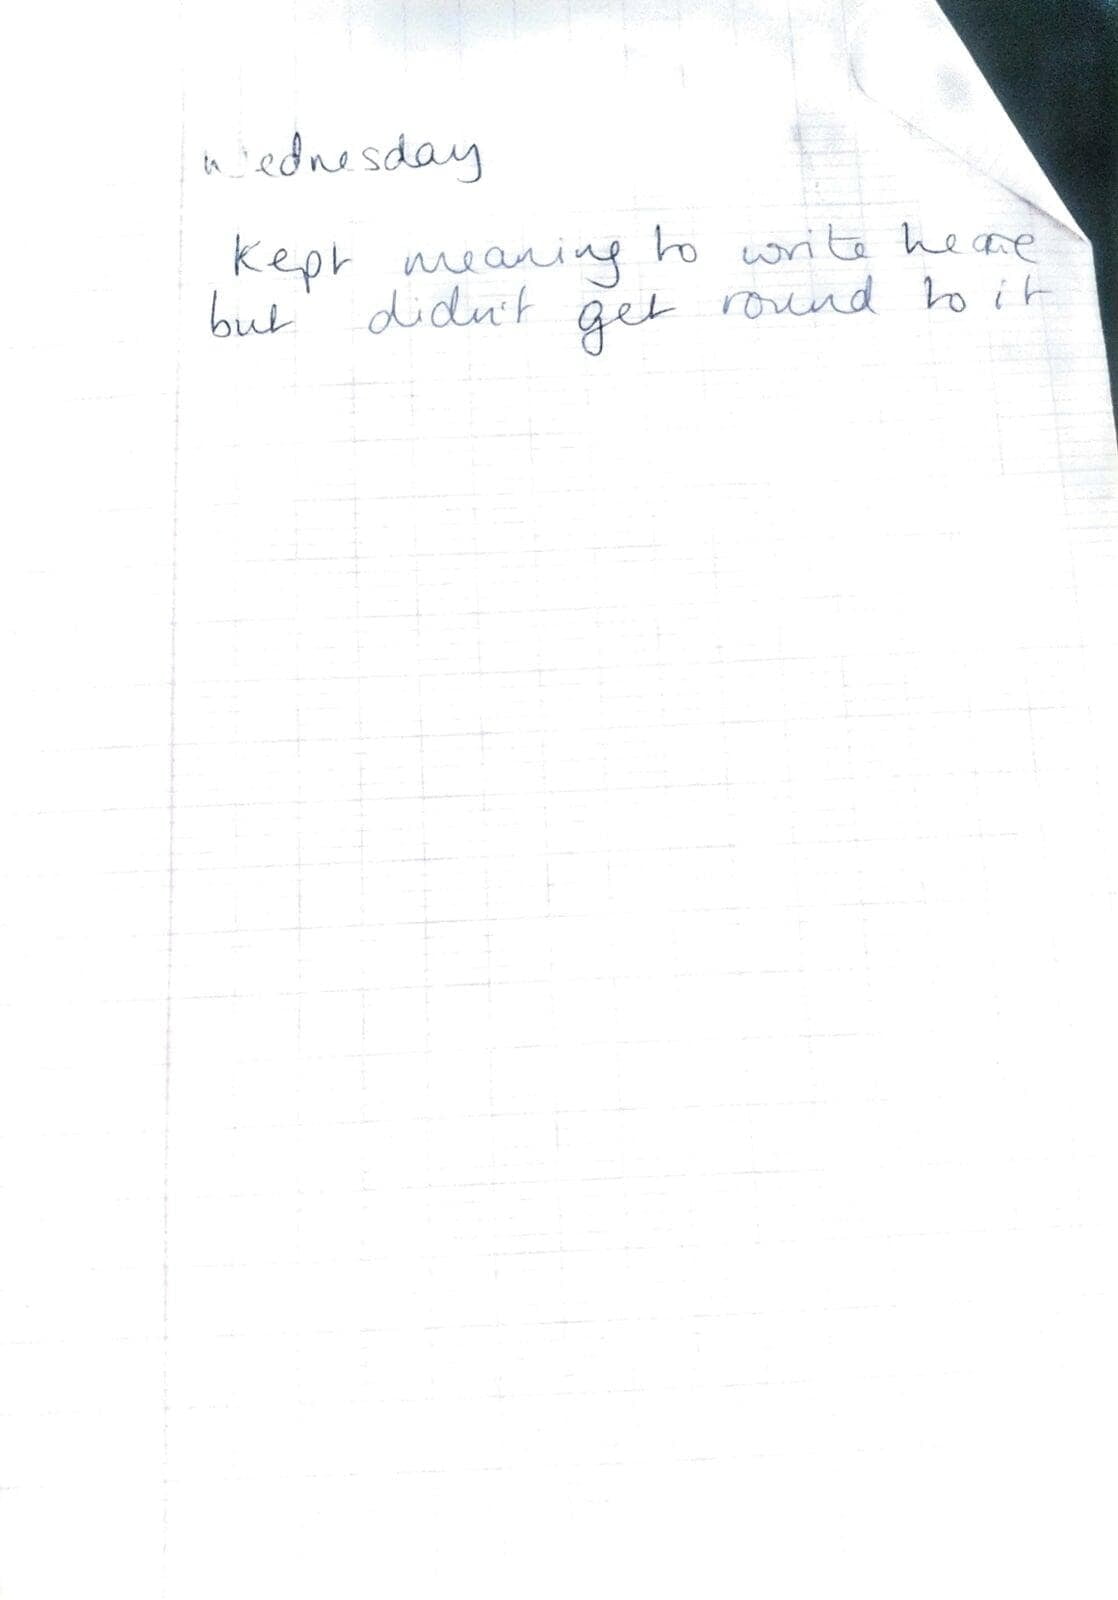 Wednesday
Kept meaning to write here
but didn't get round to it